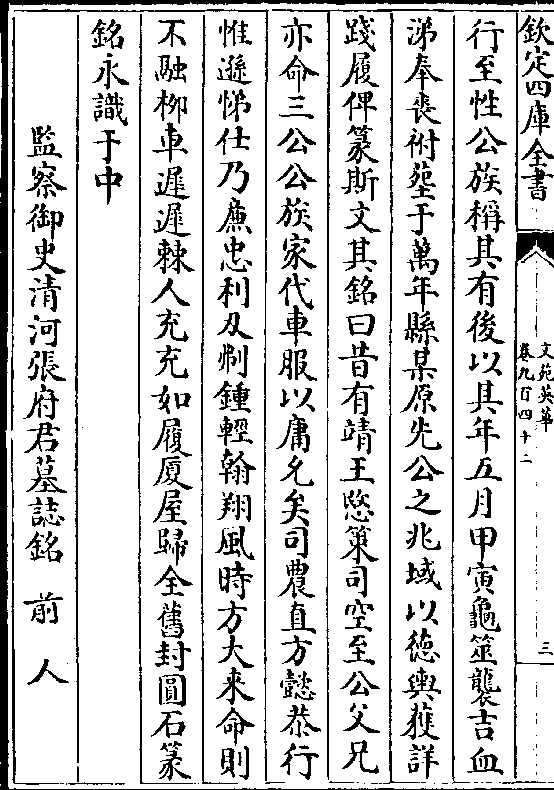 欽定四庫全書
文苑英華
卷九百四十二
三
行至性公族稱其有後以其年五月甲寅龜筮襲吉血
涕奉喪祔塟于萬年縣某原先公之兆域以德輿獲詳
踐履俾篆斯文其銘曰昔有靖王愍䇿司空至公父兄
亦命三公公族家代車服以庸允矣司農直方懿恭行
惟遜悌仕乃廉忠利刄剸鍾輕翰翔風時方大来命則
不融栁車遲遲棘人充充如履厦屋歸全舊封圓石篆
銘永識于中
監察御史清河張府君墓誌銘　前人